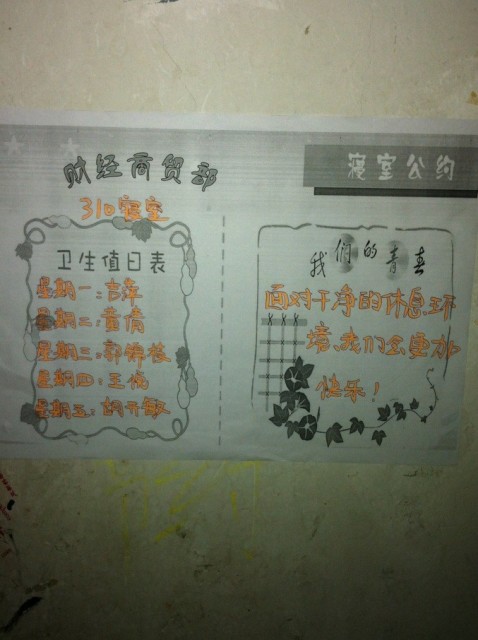 财经商贸部
寝室公约
310寝室
卫生值日表
星期一:
星期二:董倩
星期三:郭
星期四:王
星期五:胡敏
我们的青春
面对干净的休息环
境,我们会更加
快乐!